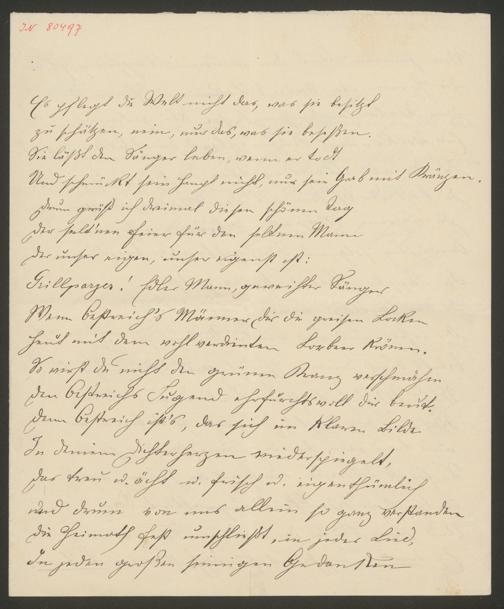 IN 80497
Es pflegt die Welt nicht das, was sie besitzt
zu schätzen, nein, nur das, was sie besessen.
Sie läßt den Sänger leben, wenn er todt
Und schmückt sein Haupt nicht, nur sein Grab mit Kränzen.
Drum grüß ich dreimal diesen schönen Tag
Der selt'nen Feier für den seltnen Mann
Der unser eigen, unser eigenst ist:
Grillparzer! Edler Mann, geweihter Sänger
Wenn Oestreich's Männer Dir die greisen Locken
Heut mit dem wohlverdienten Lorbeer krönen.
So wirst Du nicht den grünen Kranz verschmähn
Den Oestreichs Jugend ehrfurchtsvoll Dir beut.
Denn Oestreich ist's, das sich im klaren Bilde
In Deinem Dichterherzen wiederspiegelt,
Das treu u. ächt u. frisch u. eigenthümlich
und drum von uns allein so ganz verstanden
Die Heimath fest umschließt, in jedes Lied,
In jeden großen sinnigen Gedanken